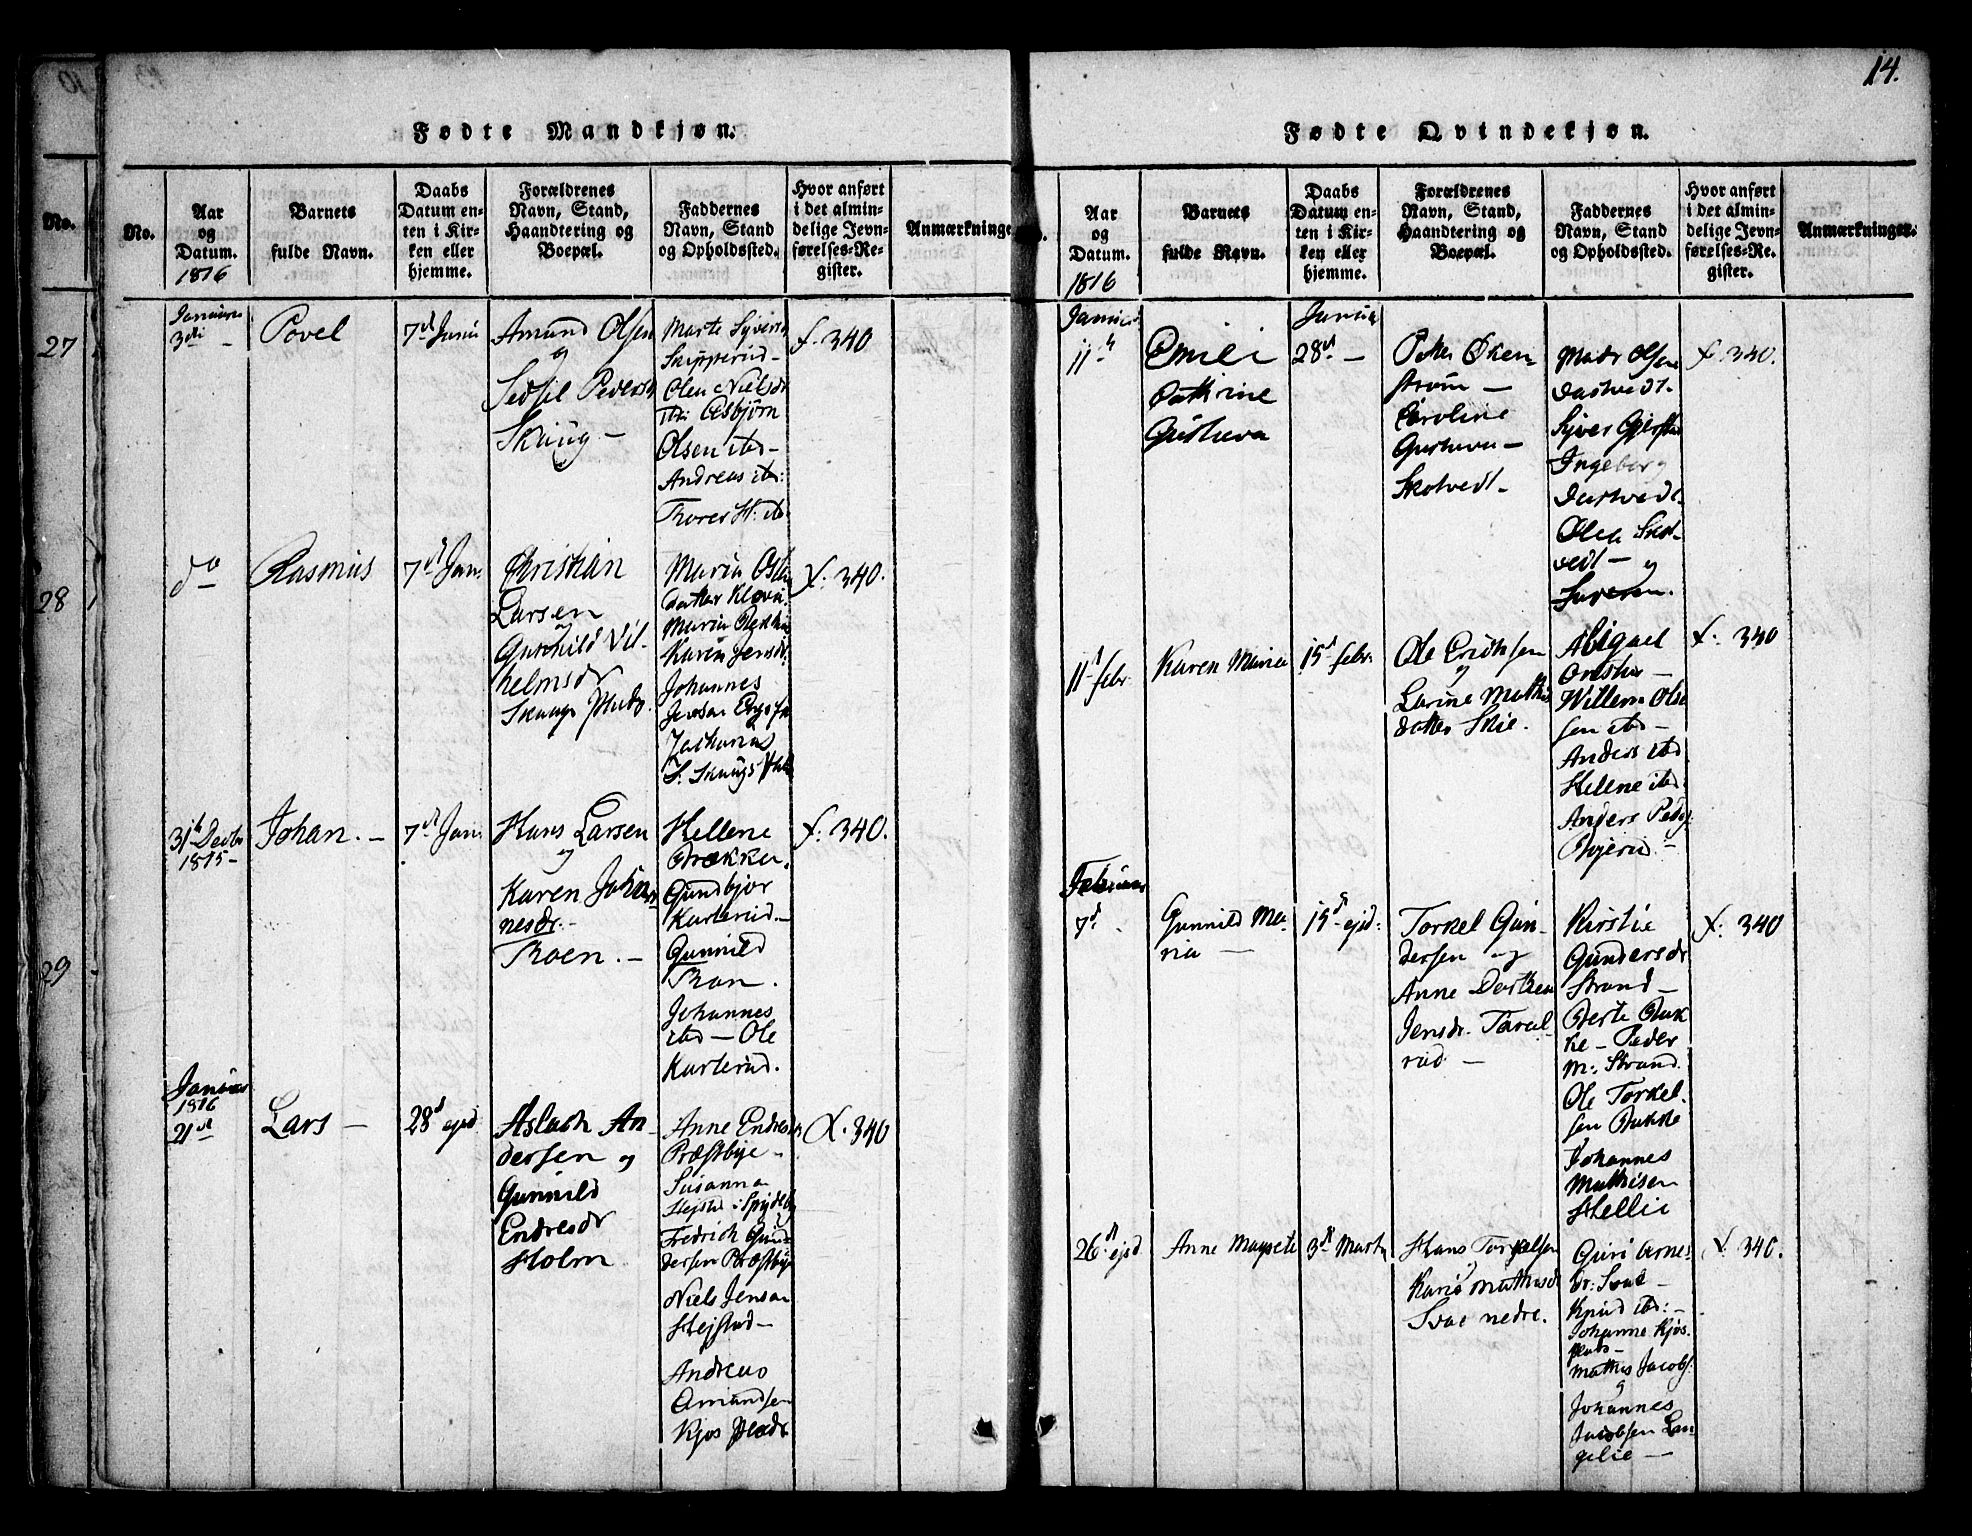 14.
Fødte Mandkjøn.
No.
No.
Aar
og
Datum.
1816
Barnets
fulde Navn.
Daabs
Datum en-
ten i Kir-
ken eller
hjemme.
Forældrenes
Navn, Stand,
Haandtering og
Boepæl.
Faddernes
Navn, Stand
og Opholdssted.
Hvor anført
i det almin-
delige Jevn-
førelses-Re-
gister.
Anmærkninge
27
28
29
Januari
3die
Povel
7d Janu
Amund Olsen
og
Sedsil Peders
Skaug –
Marte Syvers
Skipperud –
Olea Nielsdr
Asbjørn
Olsen ibd –
Andreas ibd:
Thores H: ibd
f. 340
do
Rasmus
7d Jan.
Christian
Larsen
og
Gunhild Vil-
helmsdr
Skaugs Plads.
Maria Ols
datter Kleva.
Maria
Karen Jensdr.
Johannes
Jensen
Zacharias
S. Skaugs Plads
f. 340.
31te Decbr
1815 –
Johan. –
7d Jan.
Hans Larsen
og
Karen Johan-
nesdr. –
Braen. –
Hellene
Brække.
Gundbjor
Karlerud –
Gunnild
Braen.
Johannes
ibd – Ole
Karlerud.
f. 340.
Januar
1816
21de
Lars –
28d ejsd
Aslach An-
dersen og
Gunnild
Endresdr
Holm
Anne Endresdr
Præstbye –
Susanna
Hejstad i Spydeb
Fredrich Gun-
dersen Præstbye
Niels Jensen
Hejstad –
Andreas
Amundsen
Kjos Plads
f. 340
Fødte Qvindekjøn.
Aar
og
Datum.
1816
Barnets
fulde Navn.
Daabs
Datum en-
ten i Kir-
ken eller
hjemme.
Forældrenes
Navn, Stand,
Haandtering og
Boepæl.
Faddernes
Navn, Stand
og Opholdssted.
Hvor anført
i det almin-
delige Jevn-
førelses-Re-
gister.
Anmærkninger.
Januar
11te
Emili
Cathrine
Gustava
Januar
28d –
Peter Øken-
strøm –
Caroline
Gustava –
Skotvedt –
Mads Olsen
Dastvedt.
Syver
Ingeborg
Dastvedt.
Olea Skot-
vedt – og
f. 340.
11d febr
Karen Maria
15d febr.
Ole Erichsen
og
Larine Mathis
datter Skie.
Abigael
Onstad –
Willem Ol-
sen ibd –
Anders ibd
Helene ibd.
Anders Peders
Byerud –
f. 340
Februar
7d
Gunnild Ma-
ria –
15d ejsd:
Torkel Gun-
dersen og
Anne Dorthea
Jensdr. Taral-
rud –
Kirstie
Gundersdr
Strand –
Berte Buk-
ke – Peder
M: Strand.
Ole Torkel-
sen Bukke
Johannes
Mathisen
Hellie
f. 340
26d ejsd
Anne Magrete
3d Marts
Hans Torkelsen
og
Kari Mathisdr
Svae nedre.
Guri Arnes-
dr: Svae –
Knud ibd: –
Johanne Kjos
Plads –
Mathis Jacobs.
og
Johannes
Jacobsen Lan-
gelie –
f. 340.